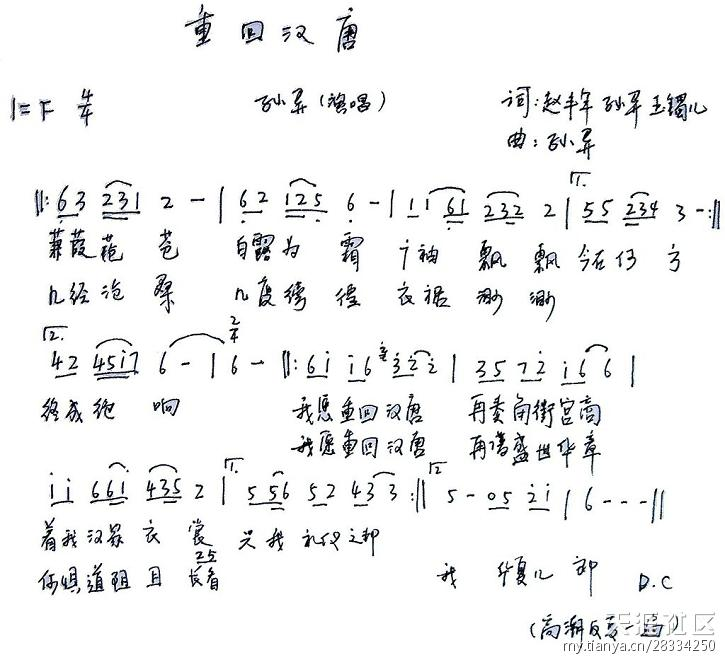 重回汉唐
1=F 4/4 孙异(演唱) 词:赵丰年 孙异 玉镯儿
曲:孙异
‖: 6 3 2 3 1 2 - | 6 2 1 2 5 6 - | 1 1 6 1 2 3 2 2 | 1. 5 5 2 3 4 3 - :‖
蒹葭苍 苍 白露为 霜 广袖 飘 飘 今在何 方
几经沧 桑 几度彷 徨 衣裾 渺 渺
2. 4 2 4 5 1 7 6 - | 2/4 6 - ‖: 6 1 1 6 3 2 2 | 3 5 7 2 1 6 6 |
终成绝 响 我愿重回汉唐 再奏角徵宫商
我愿重回汉唐 再谱盛世华章
1 1 6 6 1 4 3 5 2 | 1. 5 5 6 5 2 4 3 3 :‖ 2. 5 - 0 5 2 1 | 6 - - - ‖
着我汉家 衣 裳 兴我 礼仪之邦
何惧道阻 且 长 看 我 华夏儿 郎 D.C
(高潮反复一遍)
天涯社区
my.tianya.cn/28334250